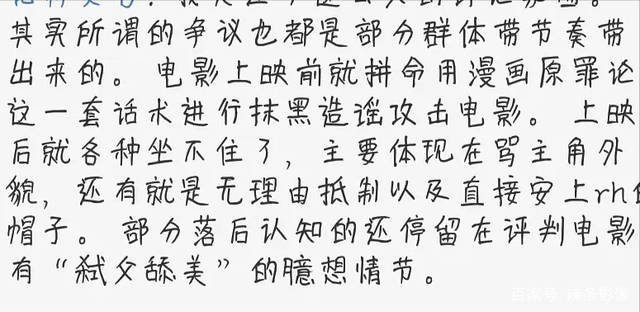 其实所谓的争议也都是部分群体带节奏带
出来的。电影上映前就拼命用漫画原罪论
这一套话术进行抹黑造谣攻击电影。上映
后就各种坐不住了，主要体现在骂主角外
貌，还有就是无理由抵制以及直接安上rh
帽子。部分落后认知的还停留在评判电影
有“弑父舔美”的臆想情节。
百家号